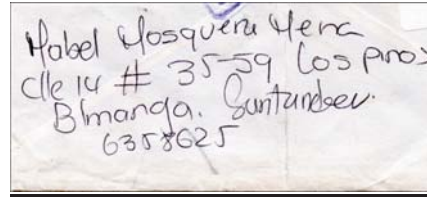 Mabel Mosquera Mena
Clle 14 # 35-59 Los pinos
B/manga. Santander.
6358625